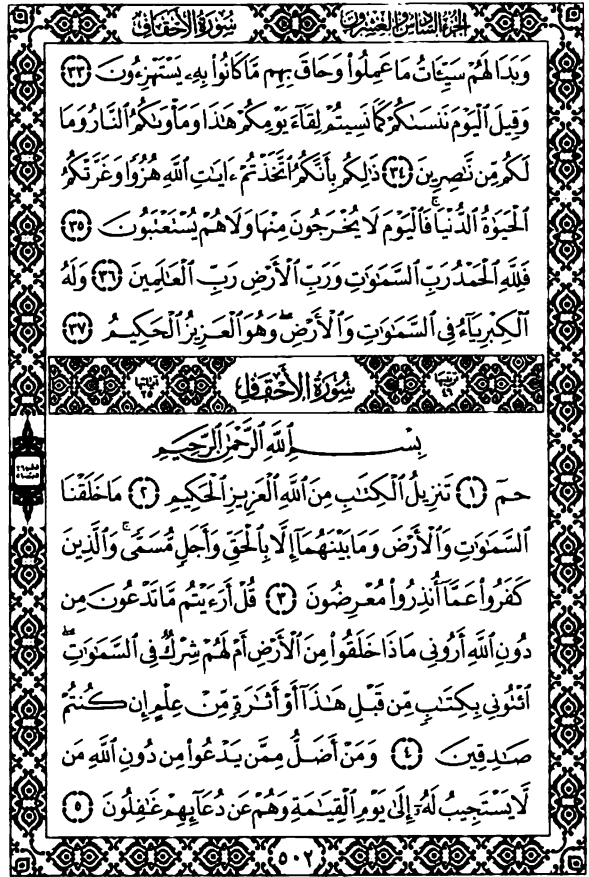 الجزء السادس والعشرون سورة الأحقاف
وَبَدَا لَهُمْ سَيِّـَٔاتُ مَا عَمِلُوا۟ وَحَاقَ بِهِم مَّا كَانُوا۟ بِهِۦ يَسْتَهْزِءُونَ ﴿٣٣﴾
وَقِيلَ ٱلْيَوْمَ نَنسَىٰكُمْ كَمَا نَسِيتُمْ لِقَآءَ يَوْمِكُمْ هَٰذَا وَمَأْوَىٰكُمُ ٱلنَّارُ وَمَا
لَكُم مِّن نَّٰصِرِينَ ﴿٣٤﴾ ذَٰلِكُم بِأَنَّكُمُ ٱتَّخَذْتُمْ ءَايَٰتِ ٱللَّهِ هُزُوًا وَغَرَّتْكُمُ
ٱلْحَيَوٰةُ ٱلدُّنْيَا ۚ فَٱلْيَوْمَ لَا يُخْرَجُونَ مِنْهَا وَلَا هُمْ يُسْتَعْتَبُونَ ﴿٣٥﴾
فَلِلَّهِ ٱلْحَمْدُ رَبِّ ٱلسَّمَٰوَٰتِ وَرَبِّ ٱلْأَرْضِ رَبِّ ٱلْعَٰلَمِينَ ﴿٣٦﴾ وَلَهُ
ٱلْكِبْرِيَآءُ فِى ٱلسَّمَٰوَٰتِ وَٱلْأَرْضِ ۖ وَهُوَ ٱلْعَزِيزُ ٱلْحَكِيمُ ﴿٣٧﴾
ترتيبها ٤٦ سُورَةُ الأَحْقَافِ آياتها ٣٥
بِسْمِ ٱللَّهِ ٱلرَّحْمَٰنِ ٱلرَّحِيمِ
حمٓ ﴿١﴾ تَنزِيلُ ٱلْكِتَٰبِ مِنَ ٱللَّهِ ٱلْعَزِيزِ ٱلْحَكِيمِ ﴿٢﴾ مَا خَلَقْنَا
ٱلسَّمَٰوَٰتِ وَٱلْأَرْضَ وَمَا بَيْنَهُمَآ إِلَّا بِٱلْحَقِّ وَأَجَلٍ مُّسَمًّى ۚ وَٱلَّذِينَ
كَفَرُوا۟ عَمَّآ أُنذِرُوا۟ مُعْرِضُونَ ﴿٣﴾ قُلْ أَرَءَيْتُم مَّا تَدْعُونَ مِن
دُونِ ٱللَّهِ أَرُونِى مَاذَا خَلَقُوا۟ مِنَ ٱلْأَرْضِ أَمْ لَهُمْ شِرْكٌ فِى ٱلسَّمَٰوَٰتِ ۖ
ٱئْتُونِى بِكِتَٰبٍ مِّن قَبْلِ هَٰذَآ أَوْ أَثَٰرَةٍ مِّنْ عِلْمٍ إِن كُنتُمْ
صَٰدِقِينَ ﴿٤﴾ وَمَنْ أَضَلُّ مِمَّن يَدْعُوا۟ مِن دُونِ ٱللَّهِ مَن
لَّا يَسْتَجِيبُ لَهُۥٓ إِلَىٰ يَوْمِ ٱلْقِيَٰمَةِ وَهُمْ عَن دُعَآئِهِمْ غَٰفِلُونَ ﴿٥﴾
٥٠٢